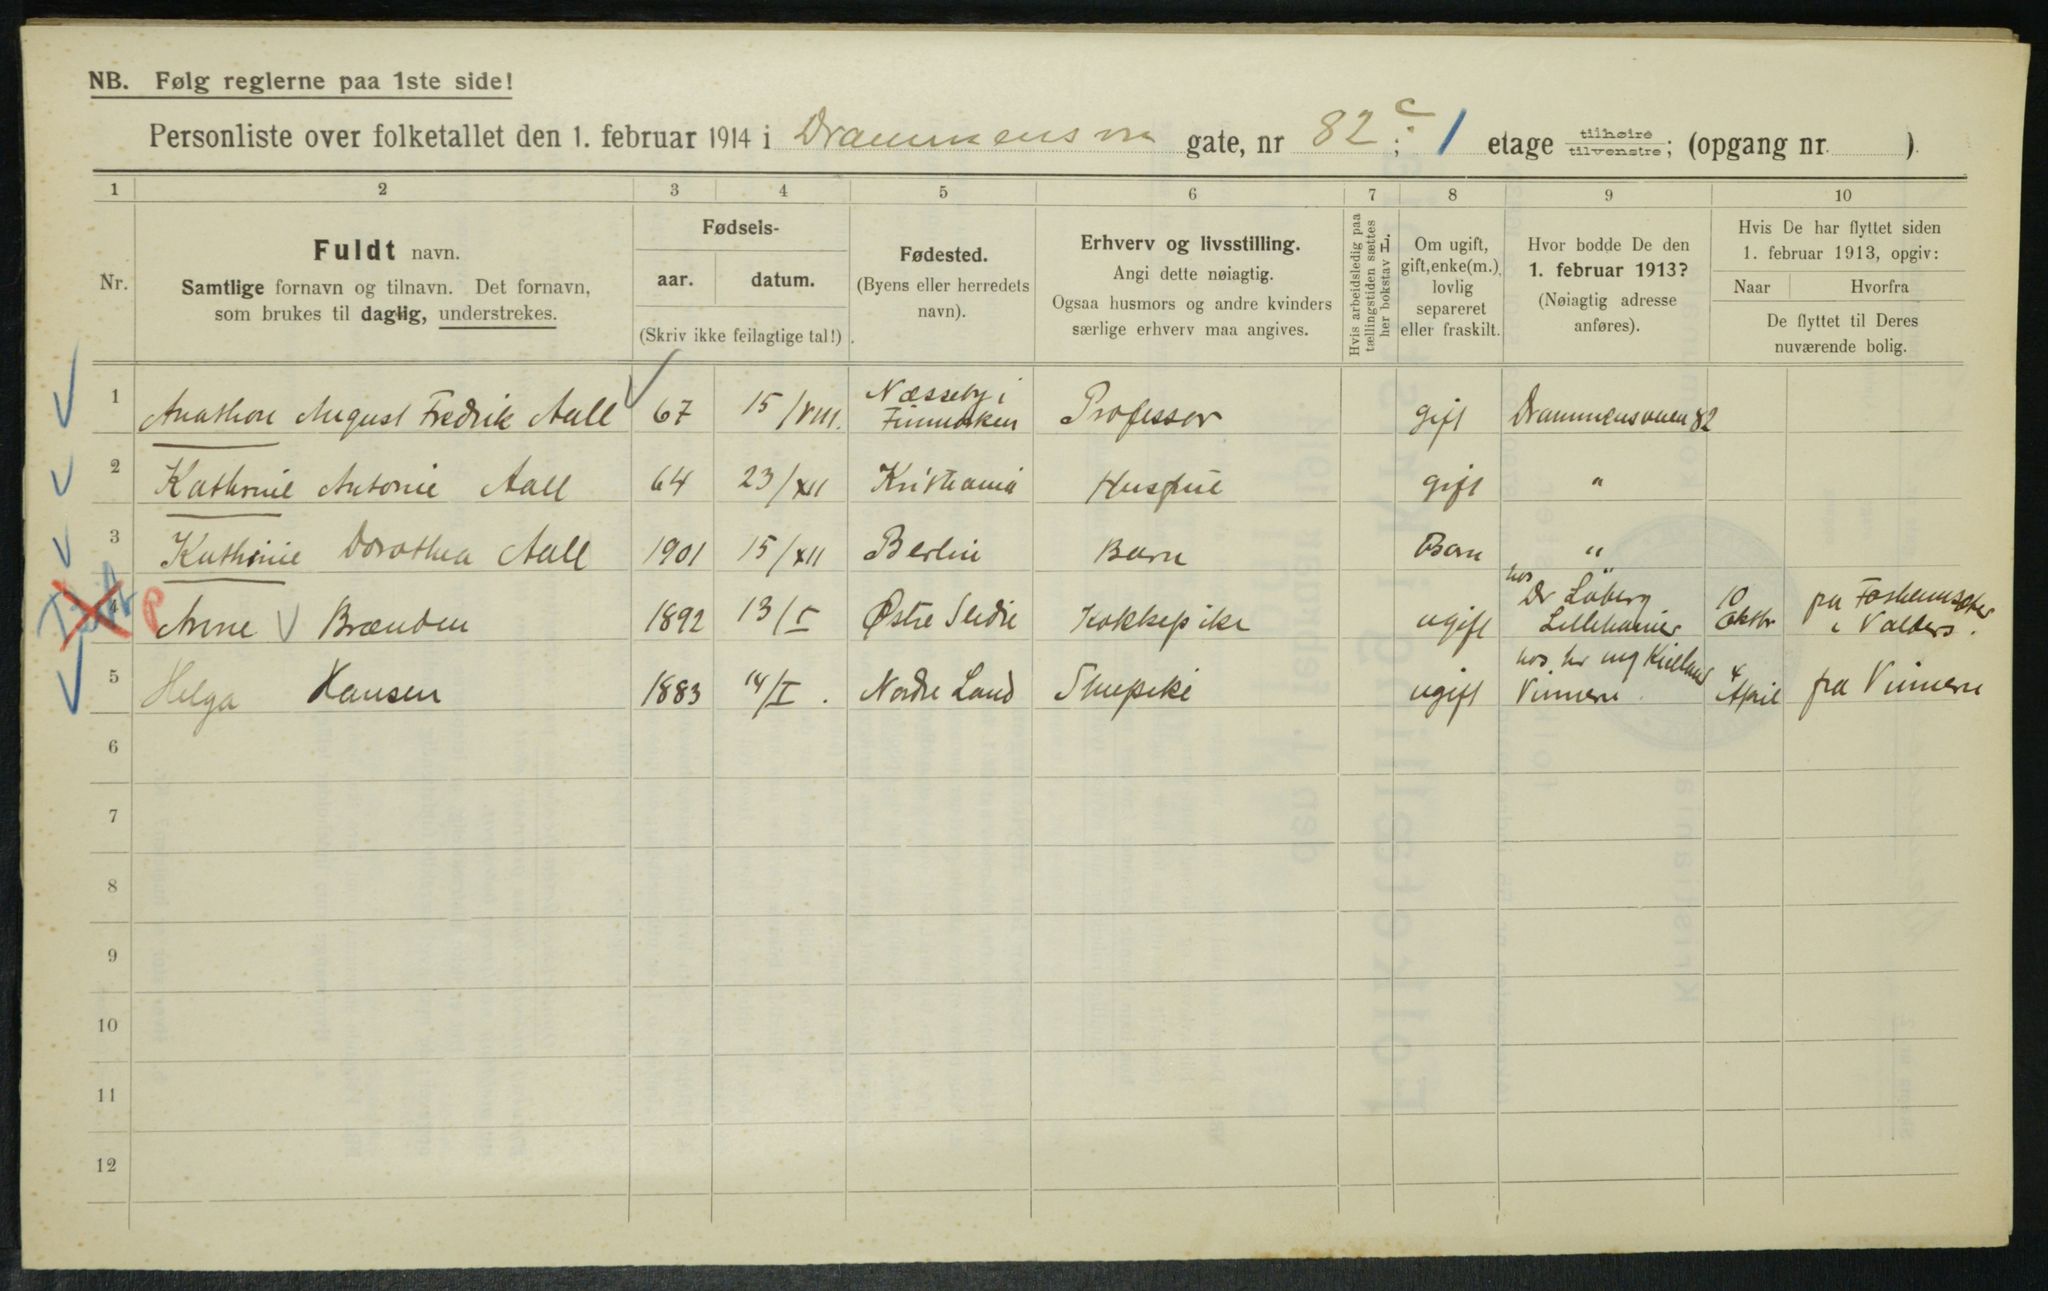 NB. Følg reglerne paa 1ste side!
Personliste over folketallet den 1. februar 1914 i Drammensvn gate, nr 82 c; 1 etage tilhøire/tilvenstre; (opgang nr. )
1 2 3 4 5 6 7 8 9 10
Nr.
Fuldt navn.
Samtlige fornavn og tilnavn. Det fornavn,
som brukes til daglig, understrekes.
Fødsels-
aar. datum.
(Skriv ikke feilagtige tal!)
Fødested.
(Byens eller herredets
navn).
Erhverv og livsstilling.
Angi dette nøiagtig.
Ogsaa husmors og andre kvinders
særlige erhverv maa angives.
Hvis arbeidsledig paa
tællingstiden sættes
her bokstav L.
Om ugift,
gift, enke(m.),
lovlig
separeret
eller fraskilt.
Hvor bodde De den
1. februar 1913?
(Nøiagtig adresse
anføres).
Hvis De har flyttet siden
1. februar 1913, opgiv:
Naar Hvorfra
De flyttet til Deres
nuværende bolig.
1 Anathon August Fredrik Aall 67 15/VIII. Næsseby i Finmarken Professor gift Drammensveien 82
2 Kathrine Antonie Aall 64 23/XII Kristiania Husfrue gift "
3 Kathrine Dorothea Aall 1901 15/XII Berlin Barn Barn "
4 Anne Brænden 1892 13/I Østre Slidre Kokkepike ugift hos Dr Löberg Lillehamer 10 Oktbr fra Fosheimsæter i Valders.
5 Helga Hansen 1883 14/I. Nordre Land Stuepike ugift hos hr ing Kielland Vinneren. 4 April fra Vinneren
6
7
8
9
10
11
12